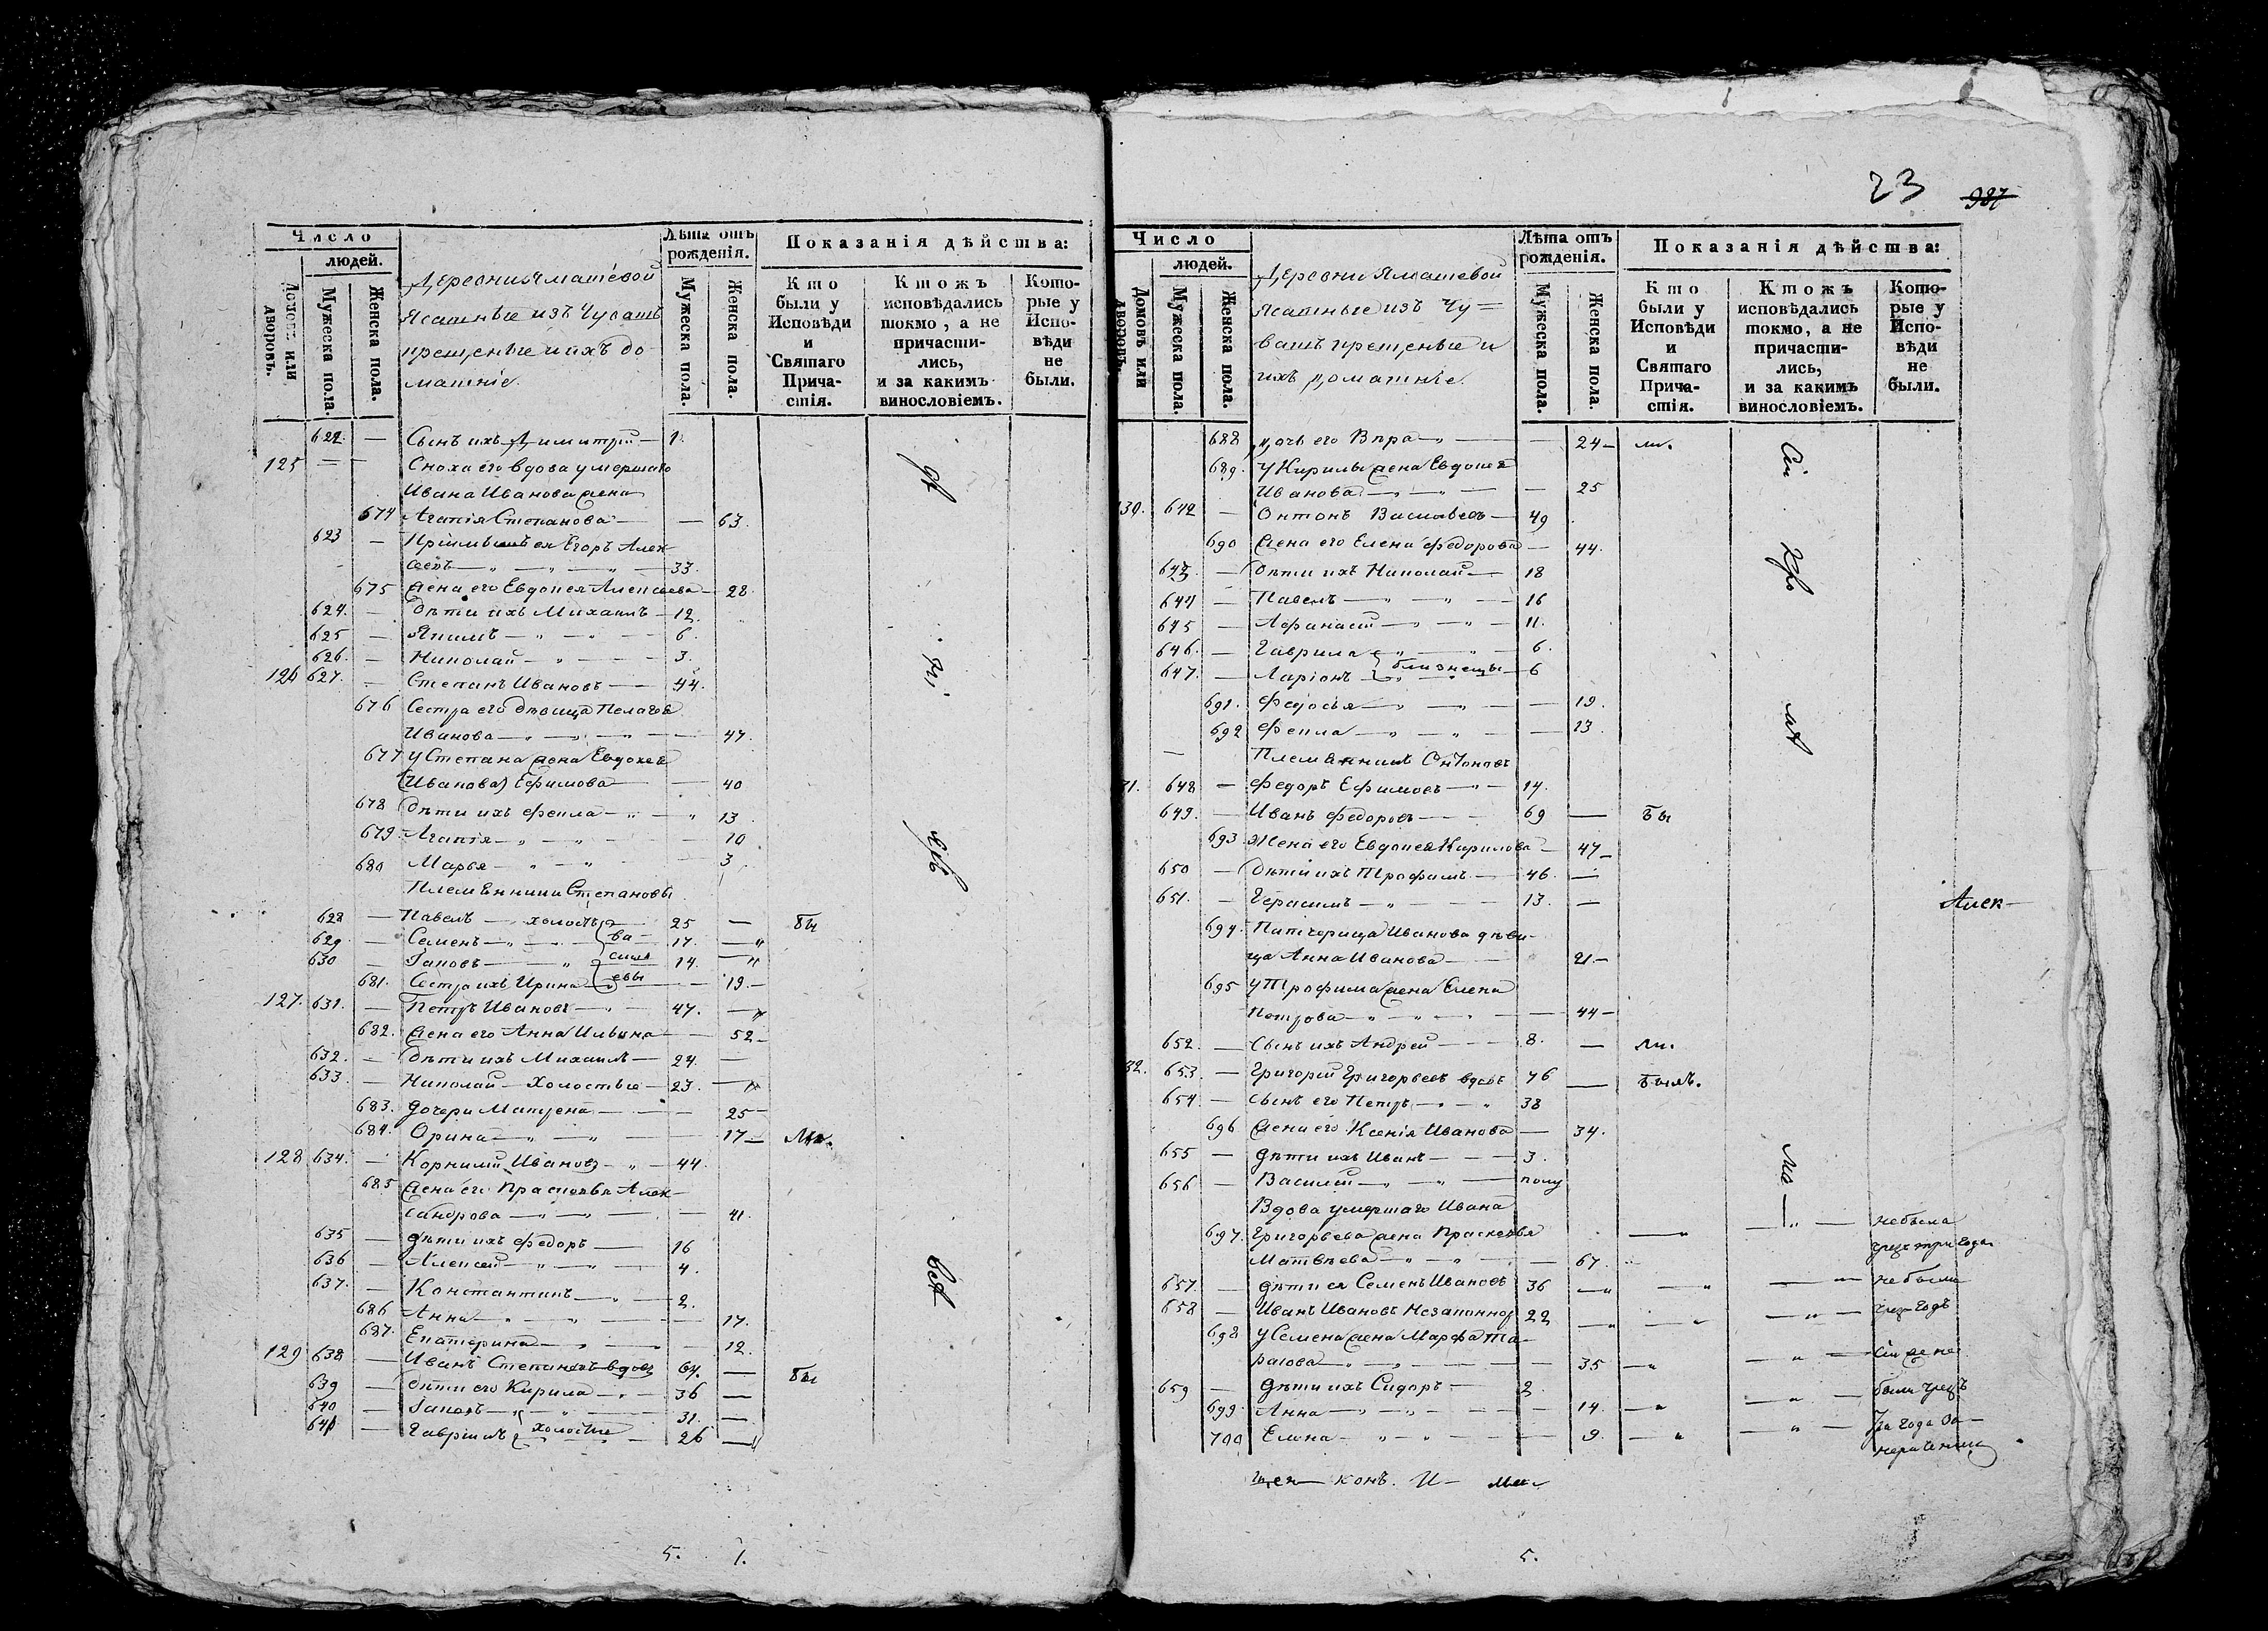 Число
людей.
Домовъ или дворовъ.
Мужеска пола.
Женска пола.
Деревни Ямашевой
Ясашные изъ Чувашъ
крещеные и ихъ до
машніе.
Лѣта отъ рожденія.
Мужеска пола.
Женска пола.
Показанія дѣйства:
Кто были у Исповѣди и Святаго Причастія.
Ктожъ исповѣдались токмо, а не причастились, и за какимъ винословіемъ.
Которые у Исповѣди не были.
622. — Сынъ ихъ Димитрій — 1.
125 — — Сноха его вдова умершаго
Ивана Иванова жена
674 Агапія Степанова — — 63.
623 — Пріимышъ ея Егоръ Алек-
сѣевъ — " — " — 33.
675 Жена его Евдокея Алексѣева — 28
624. — Дѣти ихъ Михаилъ — 12.
625 — Якимъ — " — " — 6.
626. — Николай — " — 3.
126 627. — Степанъ Ивановъ — 44.
676 Сестра его дѣвица Пелагея
Иванова — " — " — 47.
677 У Степана жена Евдокея
(Иванова) Ефимова — 40
678 Дѣти ихъ Фекла — " — " 13
679. Агапія — " — " — 10
680 Марья — " — " — 3
Племянники Степановы
628 — Павелъ — холостъ 25 — бы
629. — Семенъ — " — ва — 17. — "
630 — Іаковъ — " силь 14. — "
681. Сестра ихъ Ирина — евы — 19. —
127. 631. — Петръ Ивановъ — " — 47. — "
682. Жена его Анна Ильина — 52 —
632. — Дѣти ихъ Михаилъ — 24. —
633. — Николай — Холостые — 23. — "
683. Дочери Матрена — — 25 —
684. Орина — " — " — 17 — ли.
128 634. — Корнилій Ивановъ — " — 44.
685 Жена его Прасковья Алек-
сандрова — " — " — 41.
635 — Дѣти ихъ Федоръ — 16
636 — Алексей — " — " — 4.
637. — Константинъ — " — 2.
686 Анна — " — " — 17.
687. Екатерина — " — 12.
129 638 — Иванъ Степановъ вдовъ 64. — бы
639 — Дѣти его Кирила — " — 36 —
640 — Іаковъ — " — " — 31. —
641 — Гавріилъ холостые 26 — "
5. 1.
23 987
Число
людей.
Домовъ или дворовъ.
Мужеска пола.
Женска пола.
Деревни Ямашевой
Ясашные изъ Чу=
вашъ крещеные и
ихъ домашніе.
Лѣта отъ рожденія.
Мужеска пола.
Женска пола.
Показанія дѣйства:
Кто были у Исповѣди и Святаго Причастія.
Ктожъ исповѣдались токмо, а не причастились, и за какимъ винословіемъ.
Которые у Исповѣди не были.
688 Дочь его Вѣра — " — — 24 — ли.
689. У Кирилы жена Евдокея
Иванова — " — " — — 25
30. 642 — Онтонъ Васильевъ — 49
690 Жена его Елена Федорова — 44.
643. — Дѣти ихъ Николай — 18
644 — Павелъ — " — " — 16
645 — Афанасій — " — " — 11.
646. — Гаврила — " — " — 6.
647. — Ларіонъ близнецы — 6
691. Федосья — " — " — — 19.
692 Фекла — " — " — — 13.
— Племянникъ Онтоновъ
31. 648 — Федоръ Ефимовъ — " — 14.
649. — Иванъ Федоровъ — 69 — бы
693 Жена его Евдокея Кирилова — 47 —
650 — Дѣти ихъ Трофимъ — 46. —
651. — Герасимъ — " — 13. —
Алек —
694. Патчерица Иванова дѣви-
ца Анна Иванова — 21. —
695 У Трофима жена Елена
Петрова — " — " — — 44 —
652. — Сынъ ихъ Андрей — 8. — ли.
32. 653. — Григорій Григорьевъ вдовъ 76 — былъ.
654. — Сынъ его Петръ — " — " 38
696 Жена его Ксенія Иванова — 34.
655 — Дѣти ихъ Иванъ — 3.
656 — Василій — " — " — полу
Вдова умершаго Ивана
697. Григорьева жена Прасковья — " — " — небыла
Матвѣева — " — " — 67. чрезъ три года
657. — Дѣти ея Семенъ Ивановъ 36 — " — " — " небыли
658 — Иванъ Ивановъ Незаконнор 22 — " — " — " чрезъ годъ
698 У Семена жена Марфа Та-
расова — " — " — — 35 — " — " — сіи же не
659 — Дѣти ихъ Сидоръ — 2. — " — были чрезъ
699. Анна — " — " — — 14. — " — " —
700 Елена — " — " — — 9. — " — " —
5.